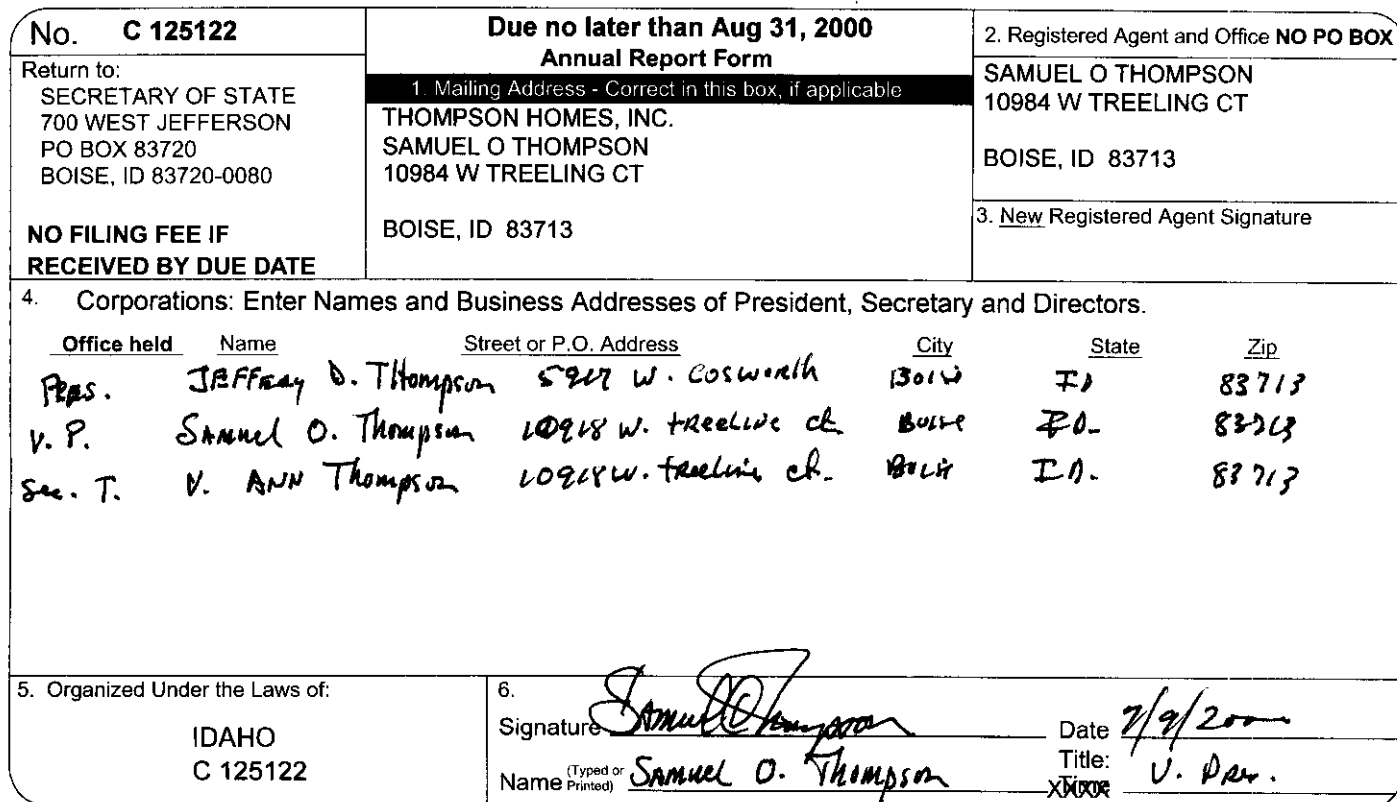 No. C 125122
Return to:
SECRETARY OF STATE
700 WEST JEFFERSON
PO BOX 83720
BOISE, ID 83720-0080
NO FILING FEE IF
RECEIVED BY DUE DATE
Due no later than Aug 31, 2000
Annual Report Form
1. Mailing Address - Correct in this box, if applicable
THOMPSON HOMES, INC.
SAMUEL O THOMPSON
10984 W TREELING CT
BOISE, ID 83713
2. Registered Agent and Office NO PO BOX
SAMUEL O THOMPSON
10984 W TREELING CT
BOISE, ID 83713
3. New Registered Agent Signature
4. Corporations: Enter Names and Business Addresses of President, Secretary and Directors.
Office held Name Street or P.O. Address City State Zip
Pres. JEFFREY D. THompson W. Cosworth Boise ID 83713
V. P. SAMUEL O. Thompson W. treeline ct Boise ID. 83713
Sec. T. V. ANN Thompson W. treeline ct. Boise ID. 83713
5. Organized Under the Laws of:
IDAHO
C 125122
6.
Signature Samuel O Thompson Date 7/9/2000
Name (Typed or Printed) SAMUEL O. Thompson Title: V. Pres.